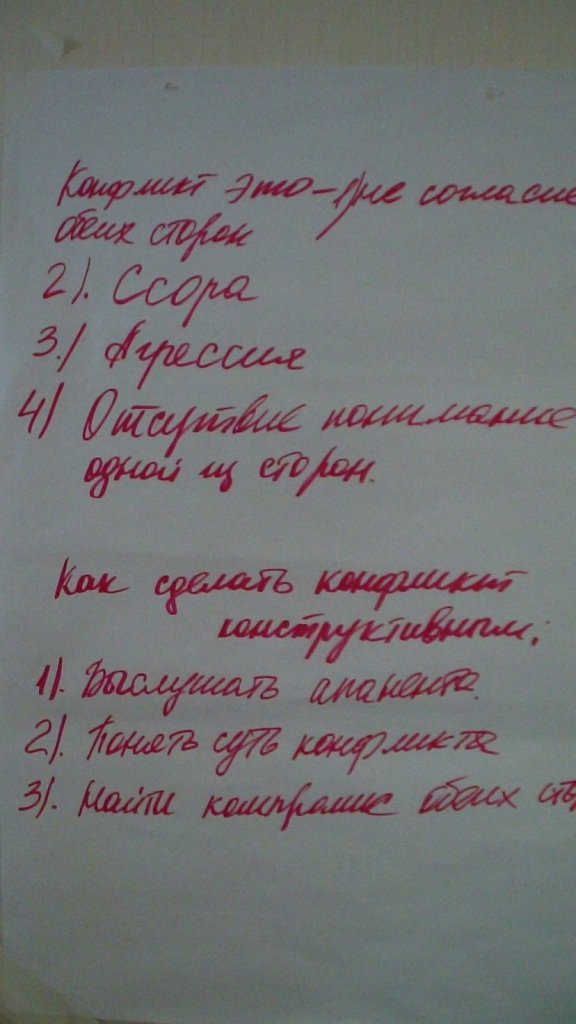 Конфликт это – 1) не согласие
обеих сторон
2). Ссора
3.) Агрессия
4) Отсутствие понимание
одной из сторон.
Как сделать конфликт
конструктивным:
1). Выслушать апанента.
2). Понять суть конфликта
3). Найти компромис обеих сто